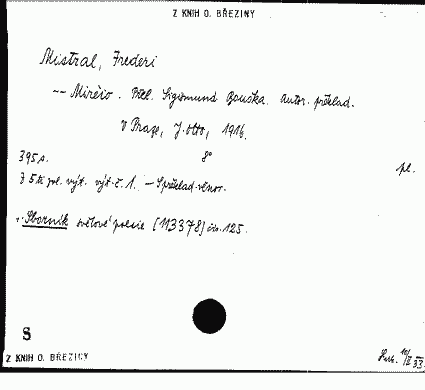 Z KNIH O. BŘEZINY
Mistral, Frederi
-- Mirèio. Přel. Sigismund Bouška. Autor. překlad.
V Praze, J. Otto, 1916.
395 s. 8° pl.
Z 5 tk. zvl. výt. výt. č. 1. – S překlad. věnov.
Sborník světové poesie [113378] čís. 125.
S
Z KNIH O. BŘEZINY